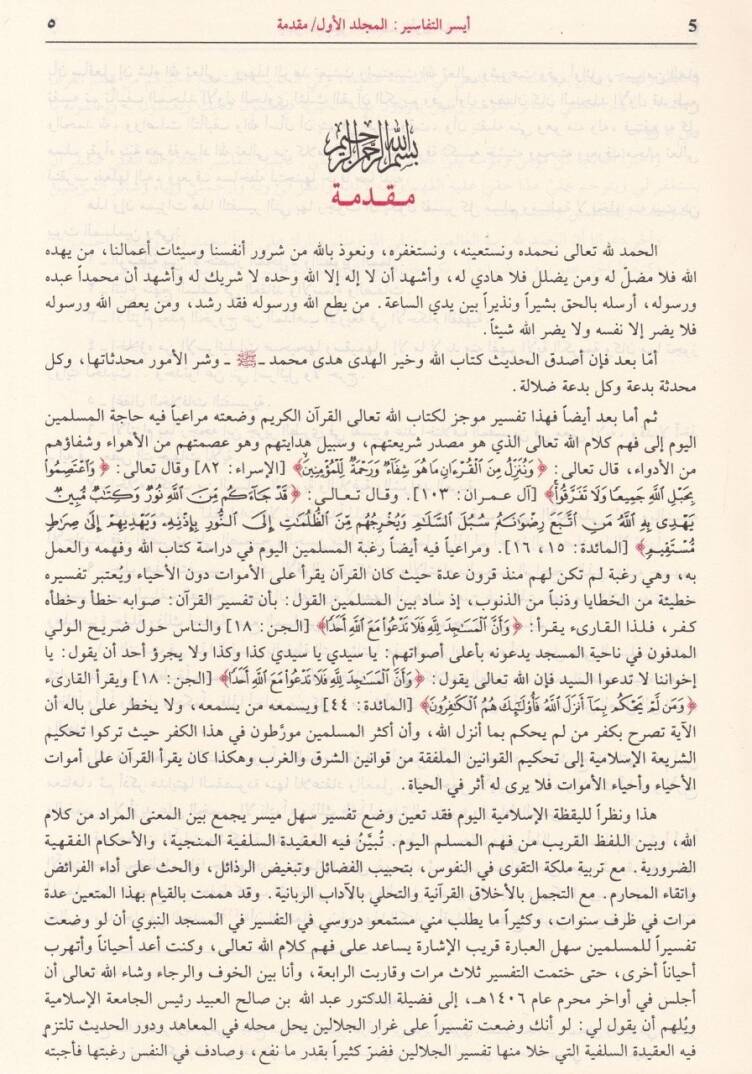 5 أيسر التفاسير: المجلد الأول/ مقدمة ٥
بسم الله الرحمن الرحيم
مـقـدمـة
الحمد لله تعالى نحمده ونستعينه، ونستغفره، ونعوذ بالله من شرور أنفسنا وسيئات أعمالنا، من يهده
الله فلا مضلّ له ومن يضلل فلا هادي له، وأشهد أن لا إله إلا الله وحده لا شريك له وأشهد أن محمداً عبده
ورسوله، أرسله بالحق بشيراً ونذيراً بين يدي الساعة. من يطع الله ورسوله فقد رشد، ومن يعص الله ورسوله
فلا يضر إلا نفسه ولا يضر الله شيئاً.
أمّا بعد فإن أصدق الحديث كتاب الله وخير الهدى هدى محمد ـ ﷺ ـ وشر الأمور محدثاتها، وكل
محدثة بدعة وكل بدعة ضلالة.
ثم أما بعد أيضاً فهذا تفسير موجز لكتاب الله تعالى القرآن الكريم وضعته مراعياً فيه حاجة المسلمين
اليوم إلى فهم كلام الله تعالى الذي هو مصدر شريعتهم، وسبيل هدايتهم وهو عصمتهم من الأهواء وشفاؤهم
من الأدواء، قال تعالى: ﴿وَنُنَزِّلُ مِنَ الْقُرْءَانِ مَا هُوَ شِفَآءٌ وَرَحْمَةٌ لِّلْمُؤْمِنِينَ﴾ [الإسراء: ٨٢] وقال تعالى: ﴿وَاعْتَصِمُوا
بِحَبْلِ اللَّهِ جَمِيعًا وَلَا تَفَرَّقُوا﴾ [آل عمران: ١٠٣]. وقال تـعـالـى: ﴿قَدْ جَآءَكُم مِّنَ اللَّهِ نُورٌ وَكِتَٰبٌ مُّبِينٌ
يَهْدِى بِهِ اللَّهُ مَنِ اتَّبَعَ رِضْوَانَهُ سُبُلَ السَّلَٰمِ وَيُخْرِجُهُم مِّنَ الظُّلُمَٰتِ إِلَى النُّورِ بِإِذْنِهِ وَيَهْدِيهِمْ إِلَىٰ صِرَٰطٍ
مُّسْتَقِيمٍ﴾ [المائدة: ١٥، ١٦]. ومراعياً فيه أيضاً رغبة المسلمين اليوم في دراسة كتاب الله وفهمه والعمل
به، وهي رغبة لم تكن لهم منذ قرون عدة حيث كان القرآن يقرأ على الأموات دون الأحياء ويُعتبر تفسيره
خطيئة من الخطايا وذنباً من الذنوب، إذ ساد بين المسلمين القول: بأن تفسير القرآن: صوابه خطأ وخطأه
كفر، فلذا القارىء يقرأ: ﴿وَأَنَّ الْمَسَٰجِدَ لِلَّهِ فَلَا تَدْعُوا مَعَ اللَّهِ أَحَدًا﴾ [الجن: ١٨] والناس حول ضريح الولي
المدفون في ناحية المسجد يدعونه بأعلى أصواتهم: يا سيدي يا سيدي كذا وكذا ولا يجرؤ أحد أن يقول: يا
إخواننا لا تدعوا السيد فإن الله تعالى يقول: ﴿وَأَنَّ الْمَسَٰجِدَ لِلَّهِ فَلَا تَدْعُوا مَعَ اللَّهِ أَحَدًا﴾ [الجن: ١٨] ويقرأ القارىء
﴿وَمَن لَّمْ يَحْكُم بِمَآ أَنزَلَ اللَّهُ فَأُولَٰئِكَ هُمُ الْكَٰفِرُونَ﴾ [المائدة: ٤٤] ويسمعه من يسمعه، ولا يخطر على باله أن
الآية تصرح بكفر من لم يحكم بما أنزل الله، وأن أكثر المسلمين مورَّطون في هذا الكفر حيث تركوا تحكيم
الشريعة الإسلامية إلى تحكيم القوانين الملفقة من قوانين الشرق والغرب وهكذا كان يقرأ القرآن على أموات
الأحياء وأحياء الأموات فلا يرى له أثر في الحياة.
هذا ونظراً لليقظة الإسلامية اليوم فقد تعين وضع تفسير سهل ميسر يجمع بين المعنى المراد من كلام
الله، وبين اللفظ القريب من فهم المسلم اليوم. تُبيَّنُ فيه العقيدة السلفية المنجية، والأحكام الفقهية
الضرورية. مع تربية ملكة التقوى في النفوس، بتحبيب الفضائل وتبغيض الرذائل، والحث على أداء الفرائض
واتقاء المحارم. مع التجمل بالأخلاق القرآنية والتحلي بالآداب الربانية. وقد هممت بالقيام بهذا المتعين عدة
مرات في ظرف سنوات، وكثيراً ما يطلب مني مستمعو دروسي في التفسير في المسجد النبوي أن لو وضعت
تفسيراً للمسلمين سهل العبارة قريب الإشارة يساعد على فهم كلام الله تعالى، وكنت أعد أحياناً وأتهرب
أحياناً أخرى، حتى ختمت التفسير ثلاث مرات وقاربت الرابعة، وأنا بين الخوف والرجاء وشاء الله تعالى أن
أجلس في أواخر محرم عام ١٤٠٦هـ، إلى فضيلة الدكتور عبد الله بن صالح العبيد رئيس الجامعة الإسلامية
ويُلهم أن يقول لي: لو أنك وضعت تفسيراً على غرار الجلالين يحل محله في المعاهد ودور الحديث تلتزم
فيه العقيدة السلفية التي خلا منها تفسير الجلالين فضرّ كثيراً بقدر ما نفع، وصادف في النفس رغبتها فأجبته